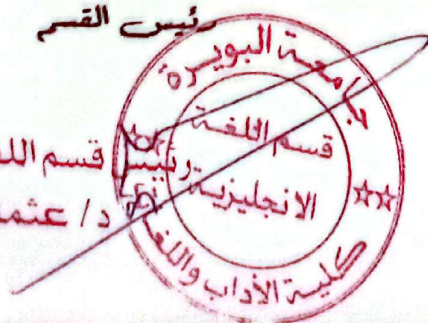 رئيس القسم
جامعة البويرة
قسم اللغة
الانجليزية
كلية الآداب واللغات
رئيس قسم
د/